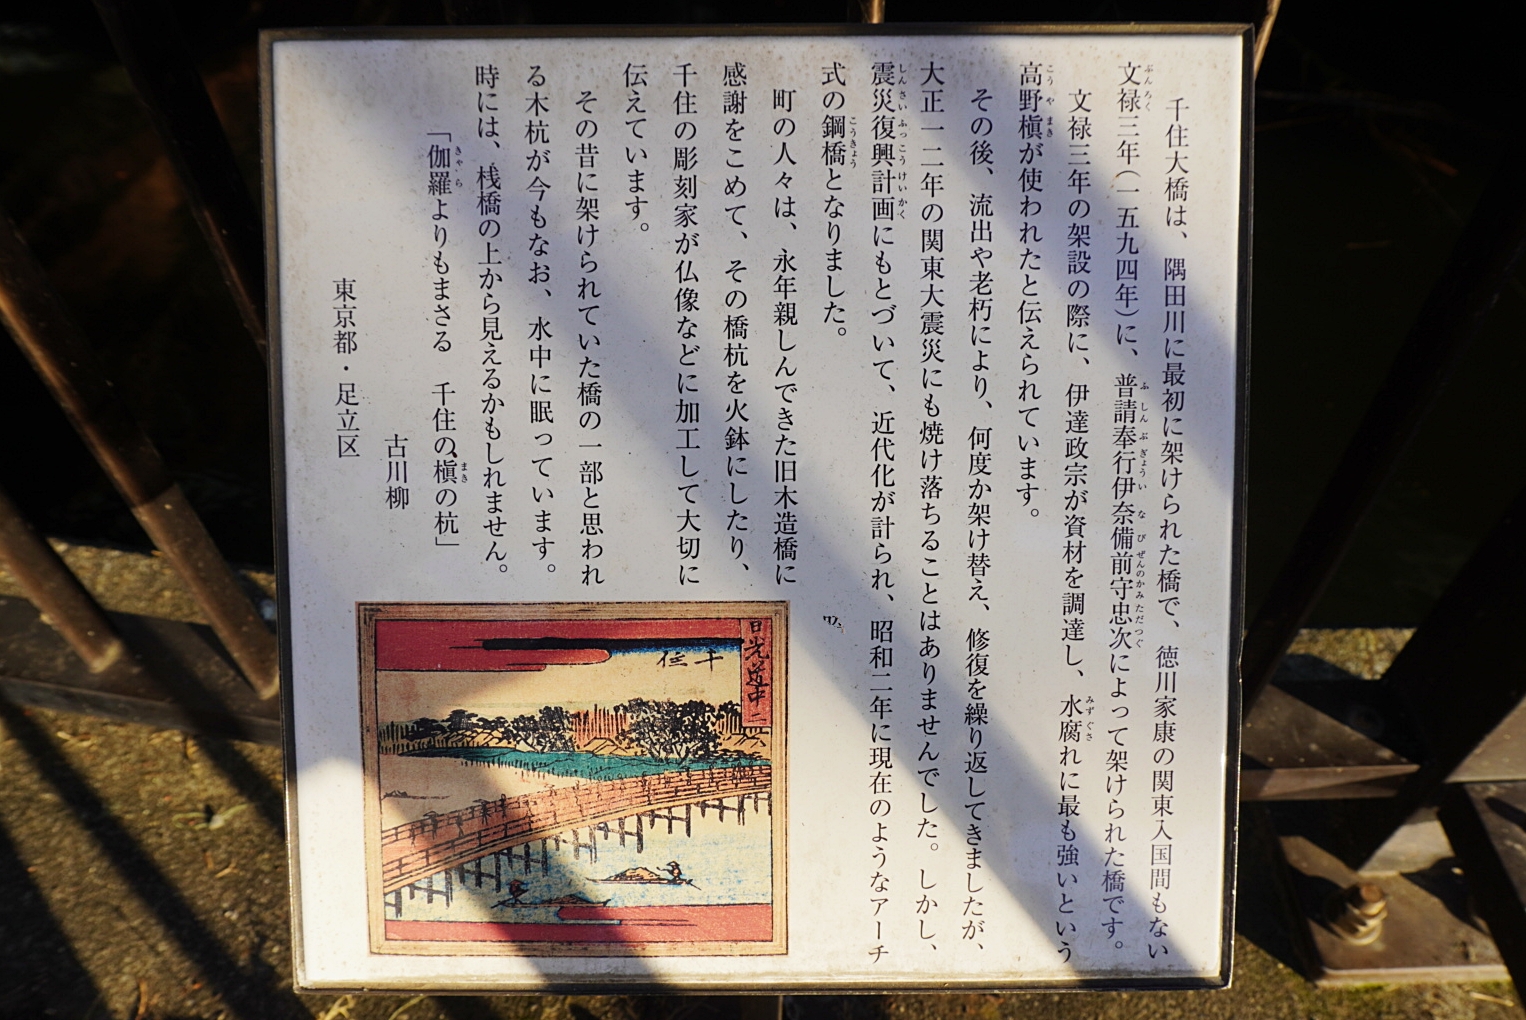 千住大橋は、隅田川に最初に架けられた橋で、徳川家康の関東入国間もない
文禄三年（一五九四年）に、普請奉行伊奈備前守忠次によって架けられた橋です。
文禄三年の架設の際に、伊達政宗が資材を調達し、水腐れに最も強いという
高野槇が使われたと伝えられています。
その後、流出や老朽により、何度か架け替え、修復を繰り返してきましたが、
大正一二年の関東大震災にも焼け落ちることはありませんでした。しかし、
震災復興計画にもとづいて、近代化が計られ、昭和二年に現在のようなアーチ
式の鋼橋となりました。
町の人々は、永年親しんできた旧木造橋に
感謝をこめて、その橋杭を火鉢にしたり、
千住の彫刻家が仏像などに加工して大切に
伝えています。
その昔に架けられていた橋の一部と思われ
る木杭が今もなお、水中に眠っています。
時には、桟橋の上から見えるかもしれません。
「伽羅よりもまさる　千住の、槇の杭」
古川柳
東京都・足立区
日光道中二
千住